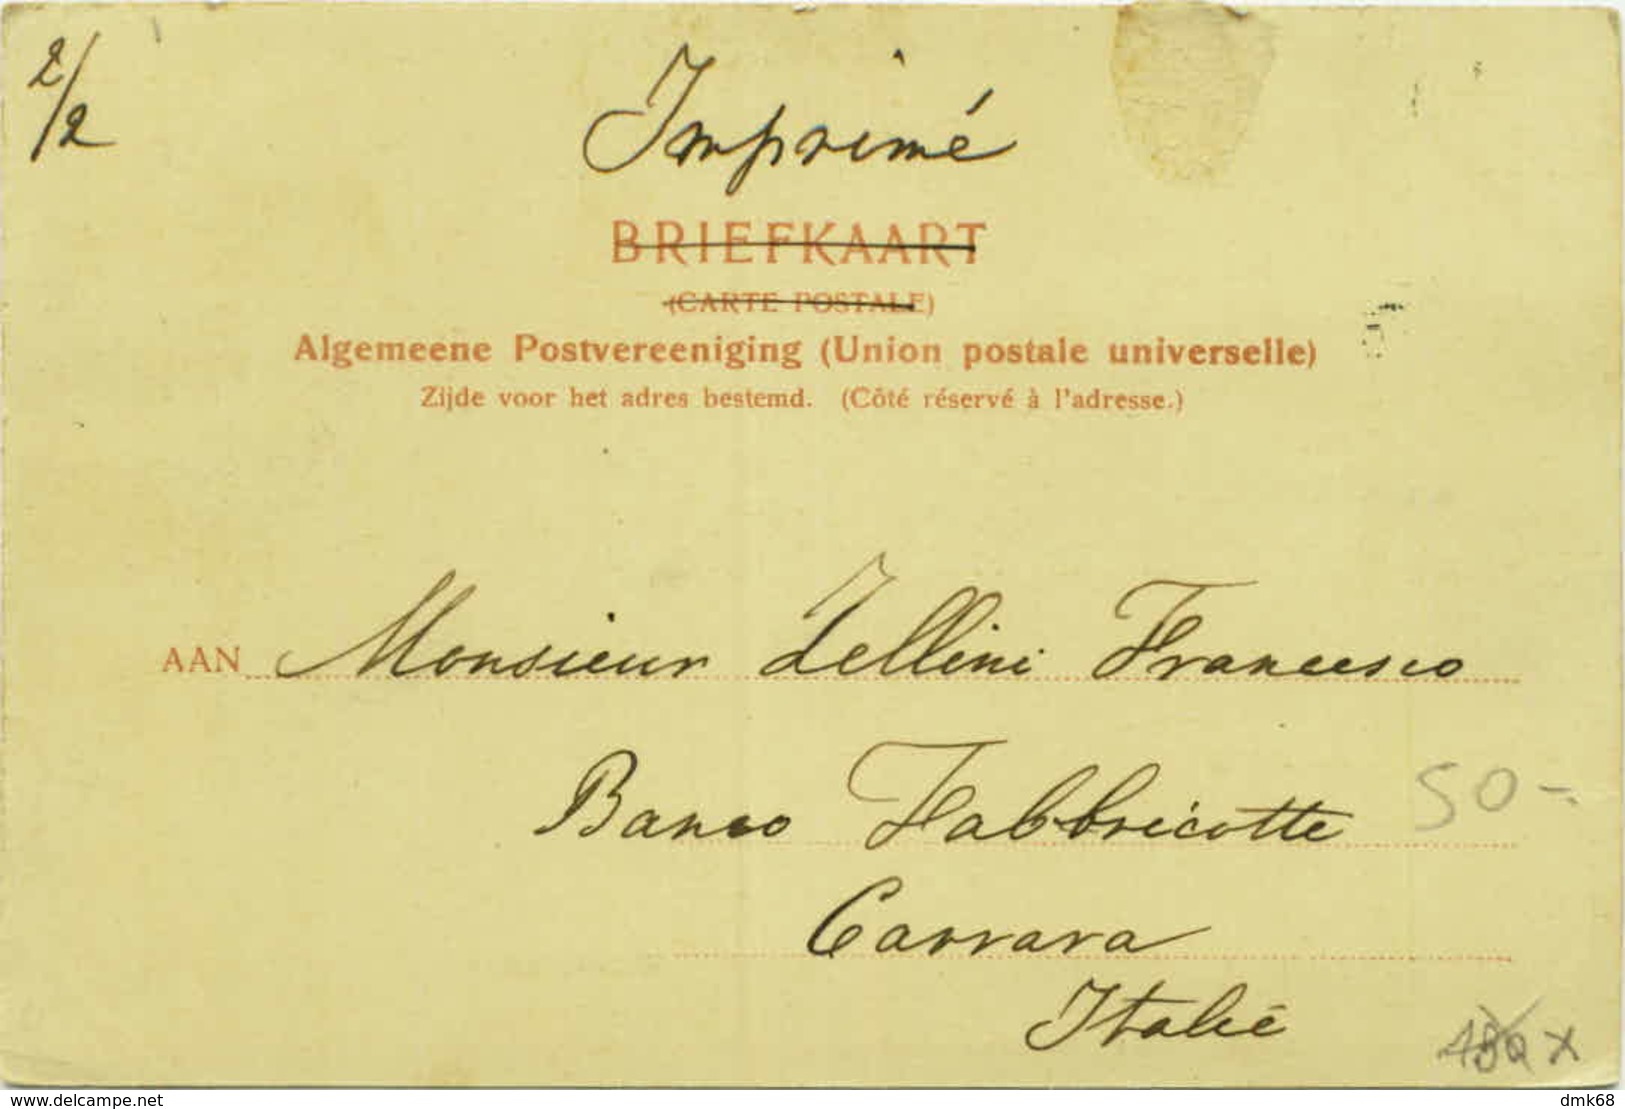 2/2
Imprimé
BRIEFKAART
(CARTE POSTALE)
Algemeene Postvereeniging (Union postale universelle)
Zijde voor het adres bestemd. (Côté réservé à l'adresse.)
AAN Monsieur Zellini Francesco
Banco Fabbricotte
50-
Carrara
Italie
www.delcampe.net
dmk68